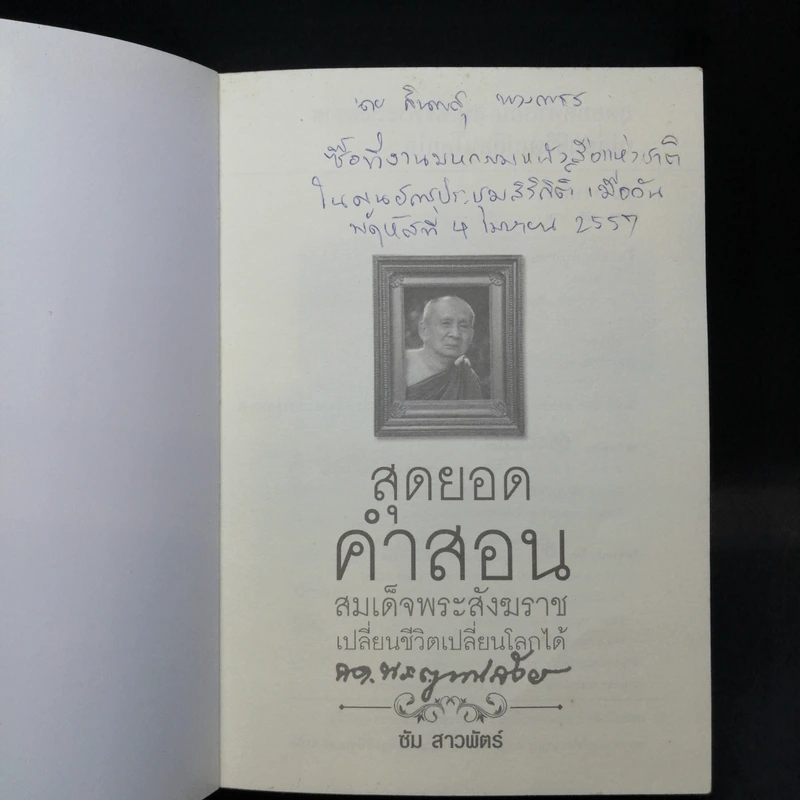 นาย
ซื้อที่งานมหกรรมหนังสือแห่งชาติ
ในศูนย์การประชุมสิริกิติ์ เมื่อวัน
พฤหัสที่ 4 เมษายน 2557
สุดยอด
คำสอน
สมเด็จพระสังฆราช
เปลี่ยนชีวิตเปลี่ยนโลกได้
ซัม สาวพัตร์